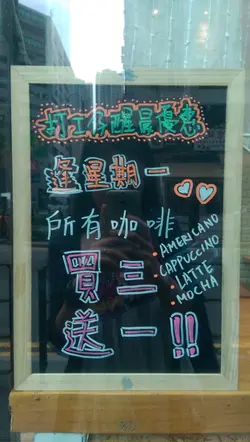 打工仔醒晨優惠
逢星期一
所有咖啡
• AMERICANO
• CAPPUCCINO
• LATTE
• MOCHA
買三
送一!!